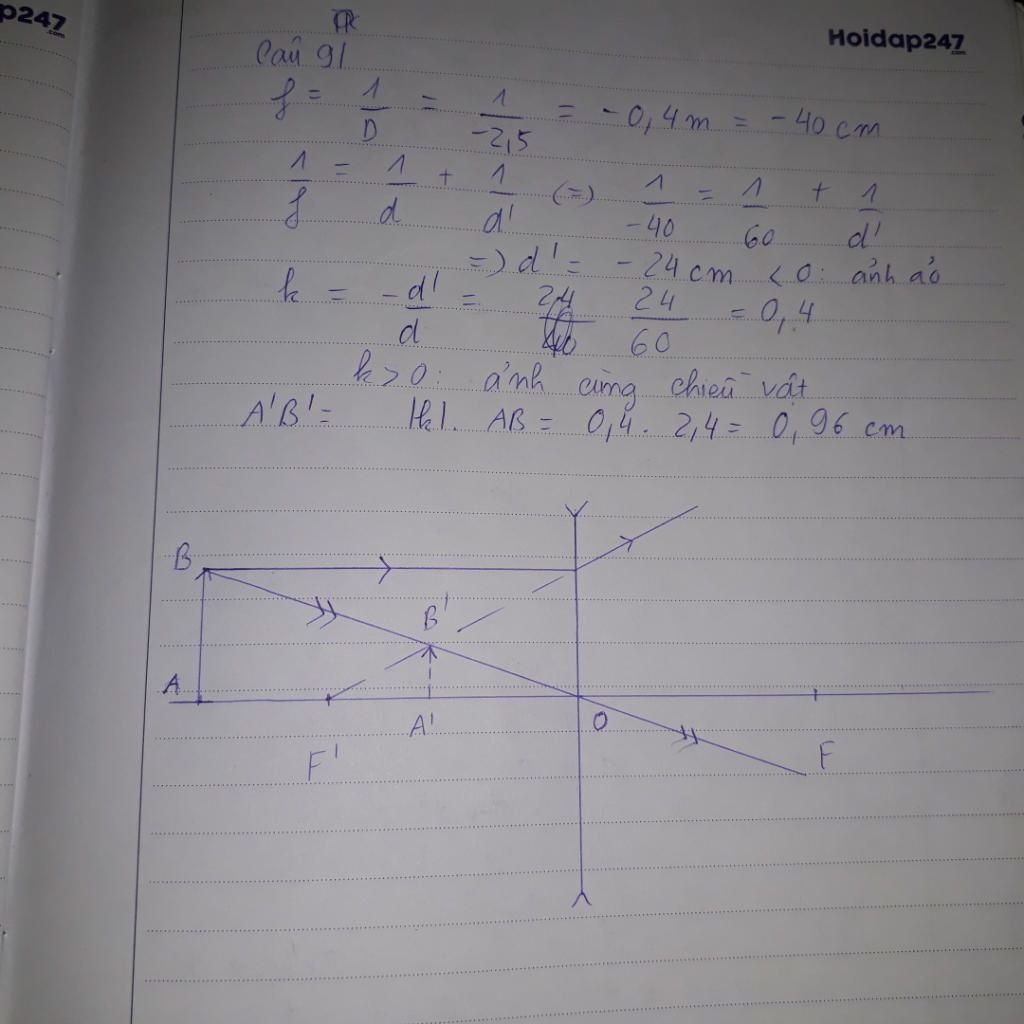 p247
.com
Hoidap247
.com
Câu 9/
f = 1/D = 1/-2,5 = -0,4m = -40cm
1/f = 1/d + 1/d' (=) 1/-40 = 1/60 + 1/d'
=) d' = -24cm < 0: ảnh ảo
k = -d'/d = 24/60 = 0,4
k > 0: ảnh cùng chiều vật
A'B' = |k|. AB = 0,4. 2,4 = 0,96 cm
B
B'
A
A'
O
F'
F